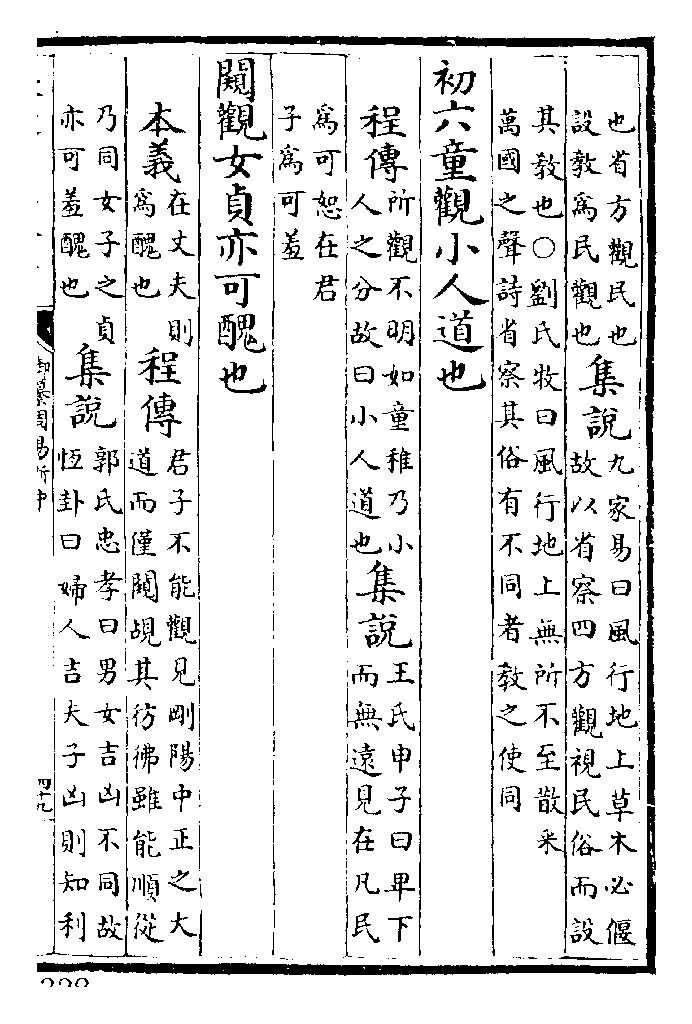 也省方觀民也
設教爲民觀也
集說
九家易曰風行地上草木必偃
故以省察四方觀視民俗而設
其教也〇劉氏牧曰風行地上無所不至散采
萬國之聲詩省察其俗有不同者教之使同
初六童觀小人道也
程傳
所觀不明如童稚乃小
人之分故曰小人道也
集說
王氏申子曰卑下
而無遠見在凡民
爲可恕在君
子爲可羞
闚觀女貞亦可醜也
本義
在丈夫則
爲醜也
程傳
君子不能觀見剛陽中正之大
道而僅闚覘其彷彿雖能順從
乃同女子之貞
亦可羞醜也
集說
郭氏忠孝曰男女吉凶不同故
恆卦曰婦人吉夫子凶則知利
御纂周易折中
四十九